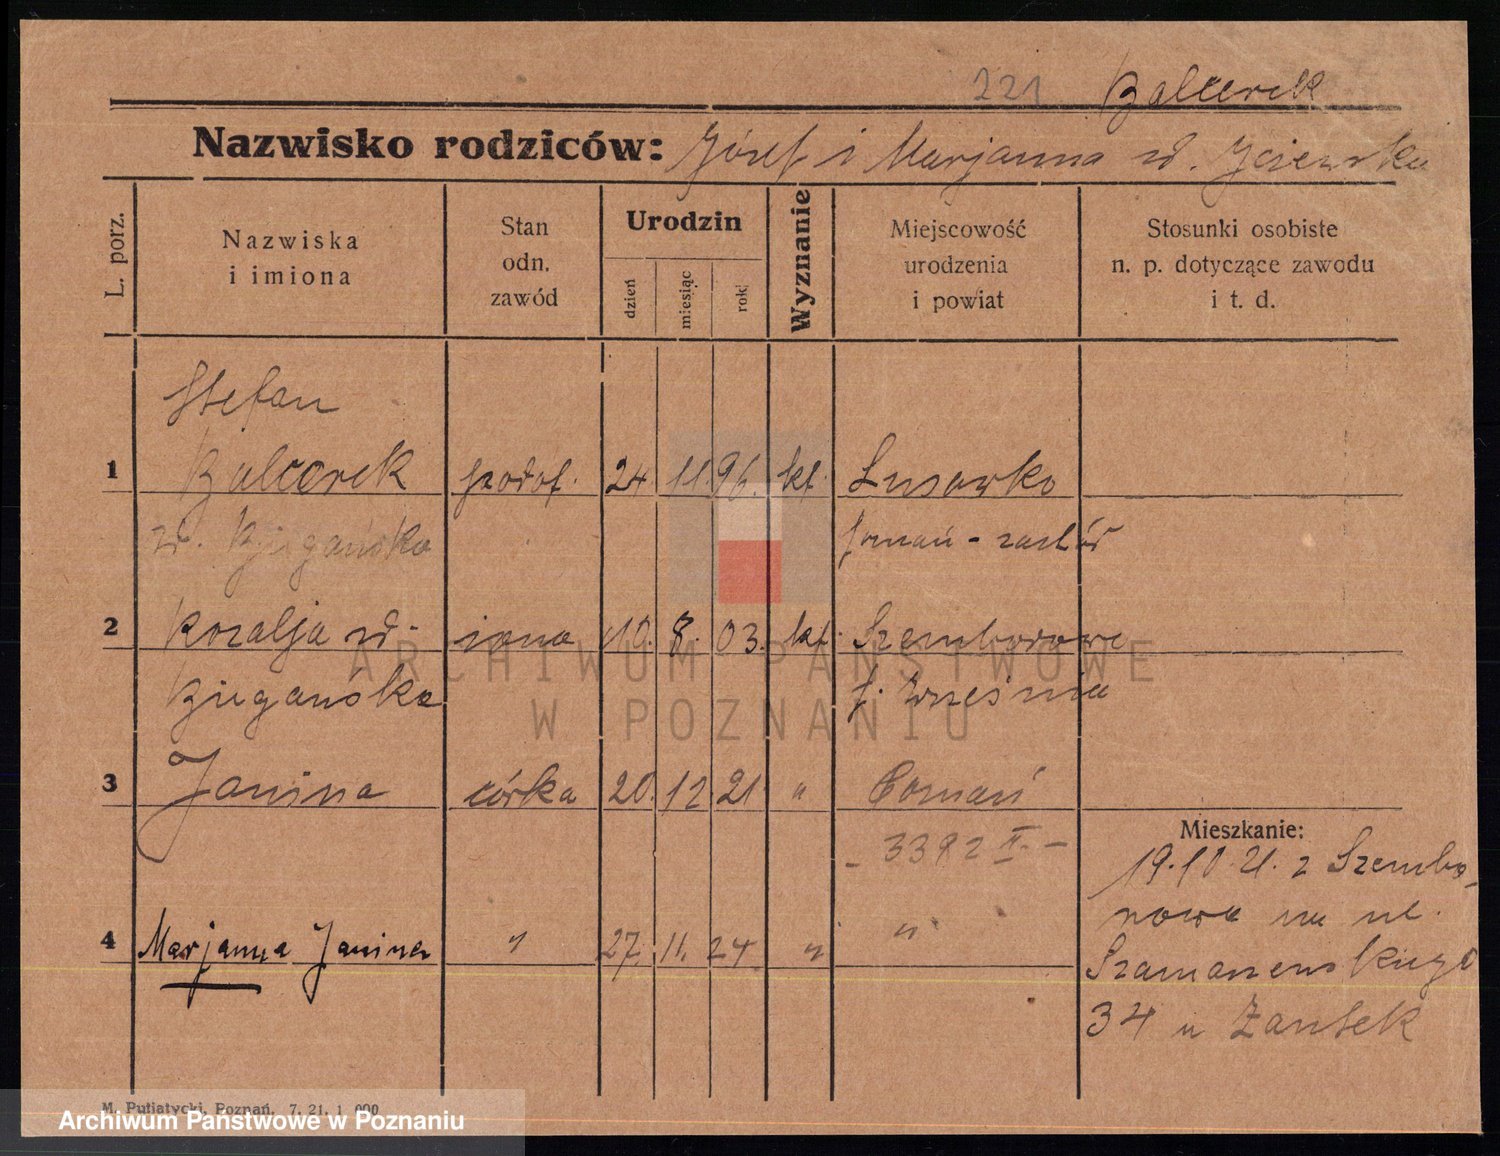 221 Balcerek
Nazwisko rodziców: Józef i Marjanna zd.
L. porz.
Nazwiska
i imiona
Stan
odn.
zawód
Urodzin
dzień
miesiąc
rok
Wyznanie
Miejscowość
urodzenia
i powiat
Stosunki osobiste
n. p. dotyczące zawodu
i t. d.
Stefan
1 Balcerek podof. 24 11. 96. kt. Lusowko
zd. Biegańska poznań - zachód
2 Rozalja zd- żona 19. 8. 03. kt. Szemborowo
Biegańska p. Września
3 Janina córka 20. 12 21 " Poznań
Mieszkanie:
- 3392 II. -
19.10.21. z Szembo-
rowa na ul.
4 Marjanna Janina " 27. 11. 24. " "
Szamarzewskiego
34 u
M. Putiatycki, Poznań. 7. 21. 1 000
ARCHIWUM PAŃSTWOWE
W POZNANIU
Archiwum Państwowe w Poznaniu